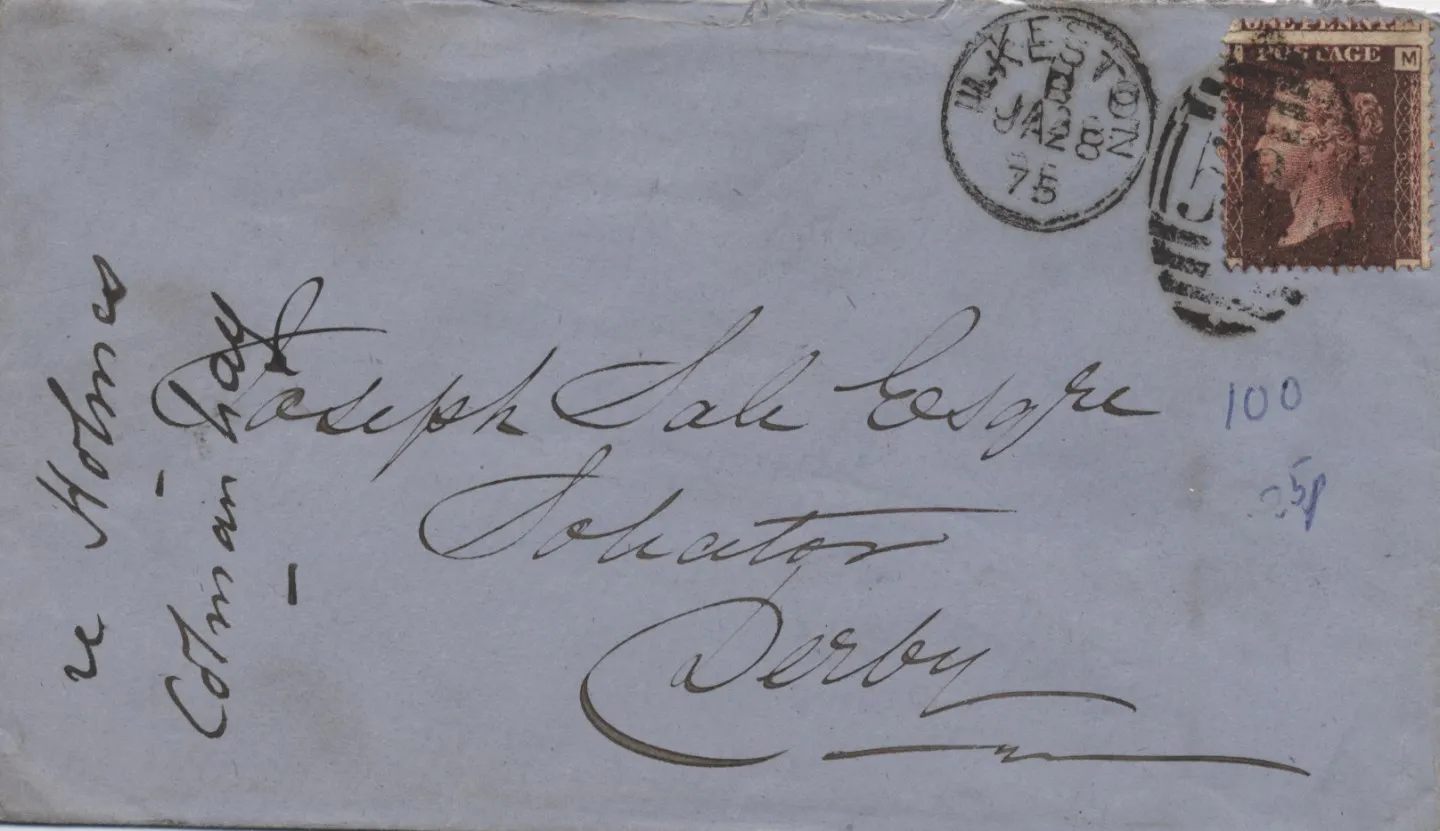 ILKESTON
B
JA 28
75
ONE PENNY
POSTAGE
M
5
Joseph Sale Esqre
Solicitor
Derby
100
re Holmes
Colman